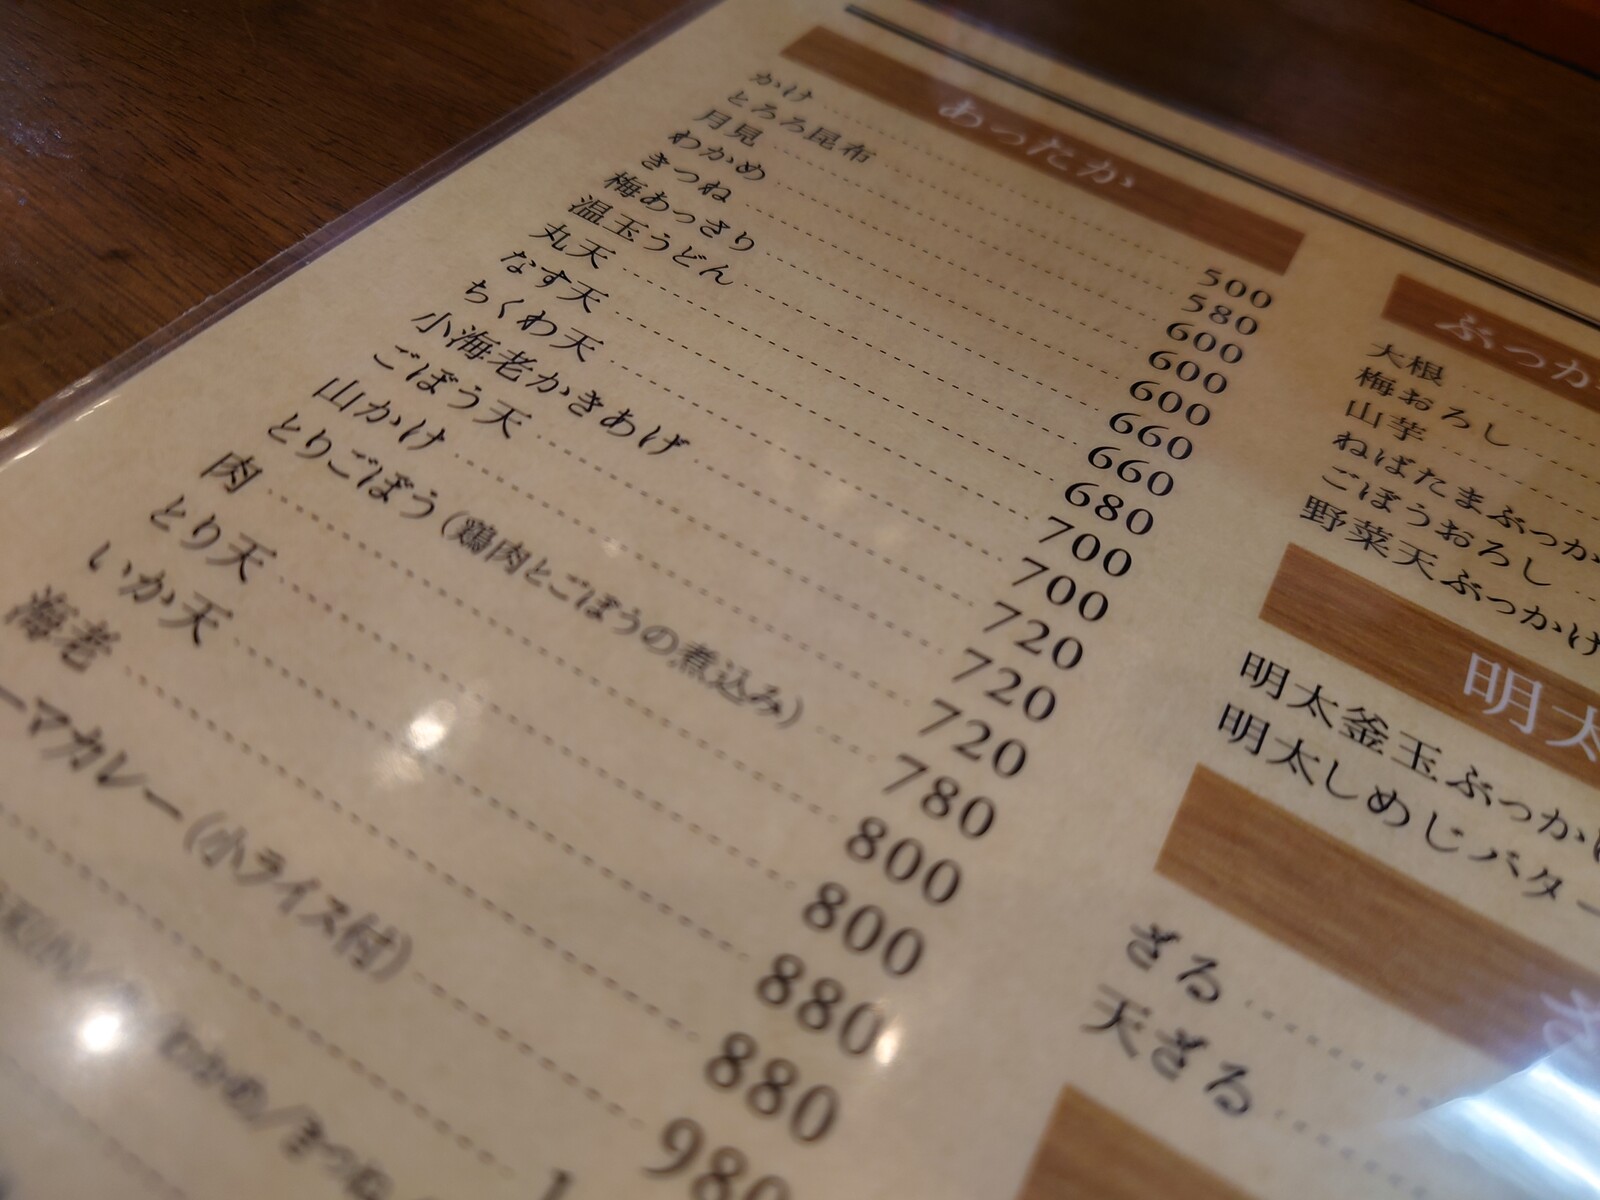 あったか
かけ 500
とろろ昆布 580
月見 600
わかめ 600
きつね 600
梅あっさり 660
温玉うどん 660
丸天 680
なす天 700
ちくわ天 700
小海老かきあげ 720
ごぼう天 720
山かけ 720
とりごぼう(鶏肉とごぼうの煮込み) 780
肉 800
とり天 800
いか天 880
海老 880
ーマカレー(小ライス付) 980
わかめ/きつね
ぶっか
大根
梅おろし
山芋
ねばたまぶっか
ごぼうおろし
野菜天ぶっかけ
明太
明太釜玉ぶっかけ
明太しめじバター
ざる
天ざる